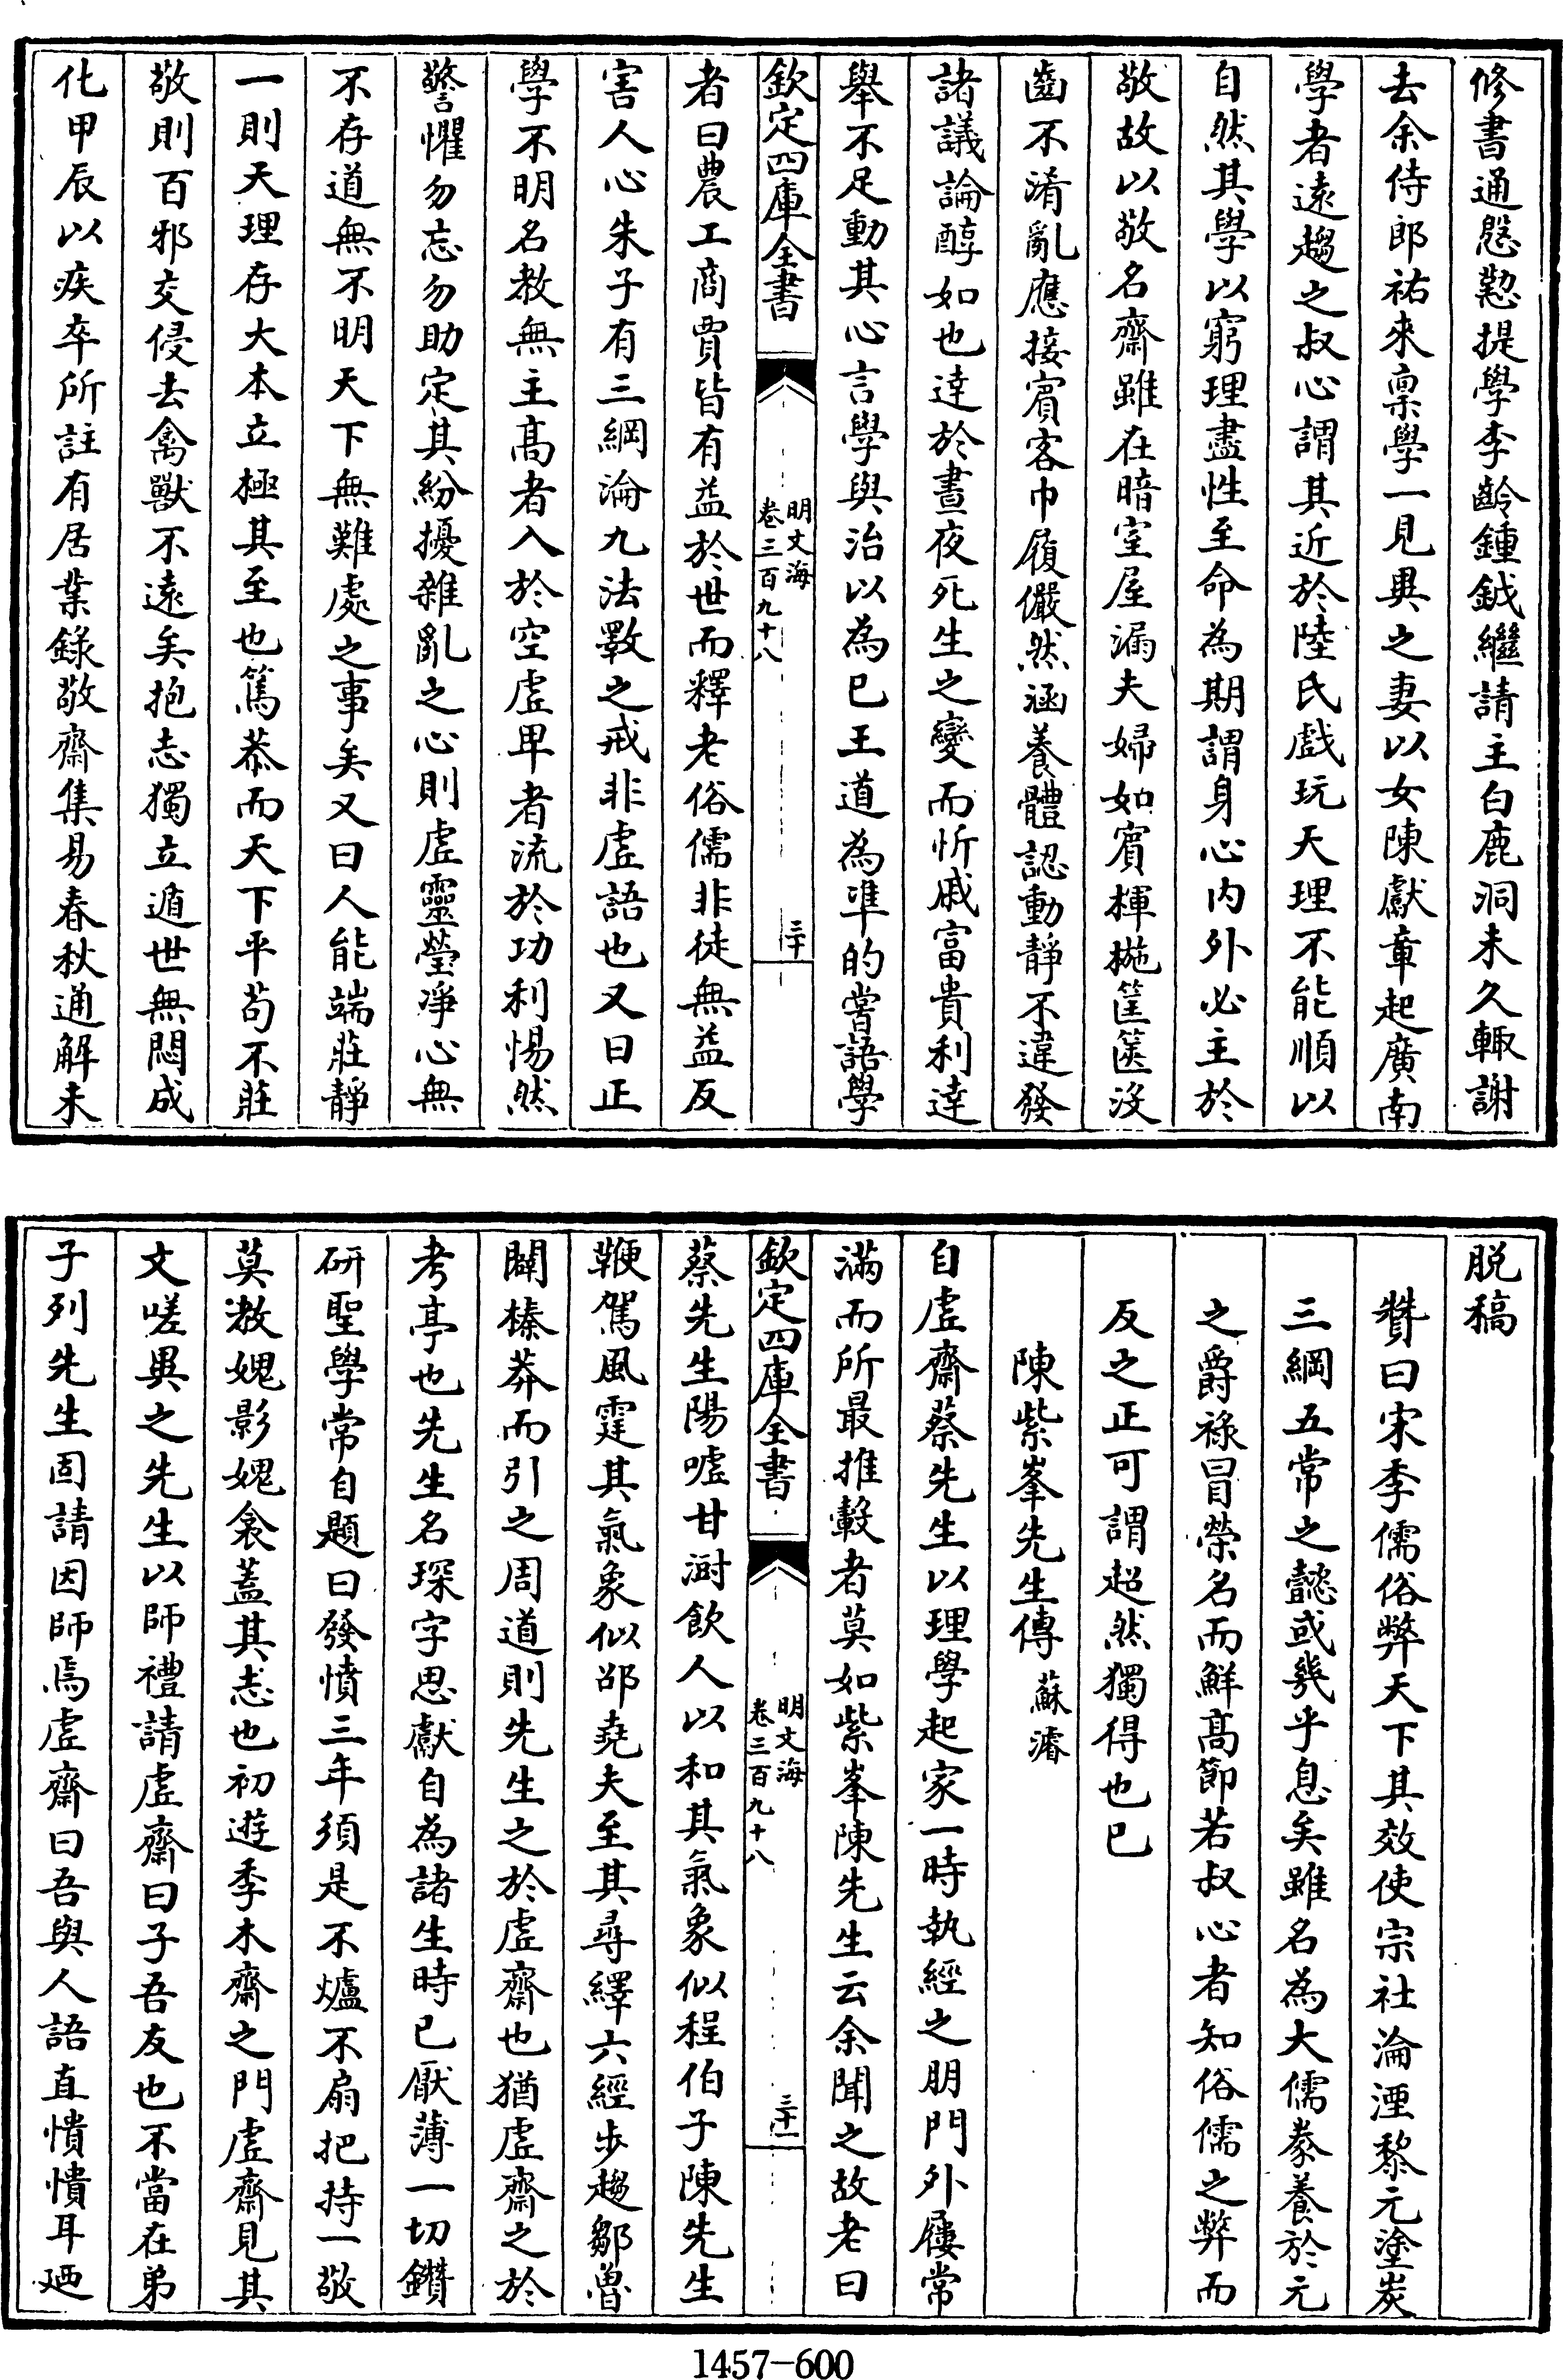 修書通慇懃提學李齡鍾鉞繼請主白鹿洞未久輙謝
去余侍郎祐來稟學一見異之妻以女陳獻章起廣南
學者遠趨之叔心謂其近於陸氏戲玩天理不能順以
自然其學以窮理盡性至命為期謂身心内外必主於
敬故以敬名齋雖在暗室屋漏夫婦如賓楎椸筐篋没
齒不淆亂應接賓客巾履儼然涵養體認動靜不違發
諸議論醇如也達於晝夜死生之變而忻戚富貴利達
舉不足動其心言學與治以為已王道為凖的嘗語學
欽定四庫全書
明文海
卷三百九十八
三十
者曰農工商賈皆有益於世而釋老俗儒非徒無益反
害人心朱子有三綱淪九法斁之戒非虛語也又曰正
學不明名教無主髙者入於空虛卑者流於功利惕然
警懼勿忘勿助定其紛擾雜亂之心則虛靈瑩凈心無
不存道無不明天下無難處之事矣又曰人能端莊靜
一則天理存大本立極其至也篤恭而天下平苟不莊
敬則百邪交侵去禽獸不遠矣抱志獨立遁世無悶成
化甲辰以疾卒所註有居業錄敬齋集易春秋通解未
脱稿
贊曰宋季儒俗弊天下其效使宗社淪湮黎元塗炭
三綱五常之懿或幾乎息矣雖名為大儒豢養於元
之爵祿冒榮名而鮮髙節若叔心者知俗儒之弊而
反之正可謂超然獨得也已
陳紫峯先生傳 蘇濬
自虛齋蔡先生以理學起家一時執經之朋門外屨常
滿而所最推轂者莫如紫峯陳先生云余聞之故老曰
欽定四庫全書
明文海
卷三百九十八
三十一
蔡先生陽噓甘澍飲人以和其氣象似程伯子陳先生
鞭駕風霆其氣象似邵堯夫至其尋繹六經步趨鄒魯
闢榛莽而引之周道則先生之於虛齋也猶虛齋之於
考亭也先生名琛字思獻自為諸生時已厭薄一切鑽
研聖學常自題曰發憤三年須是不爐不扇把持一敬
莫敎媿影媿衾蓋其志也初遊季木齋之門虛齋見其
文嗟異之先生以師禮請虛齋曰子吾友也不當在弟
子列先生固請因師焉虛齋曰吾與人語直憒憒耳廼
1457-600